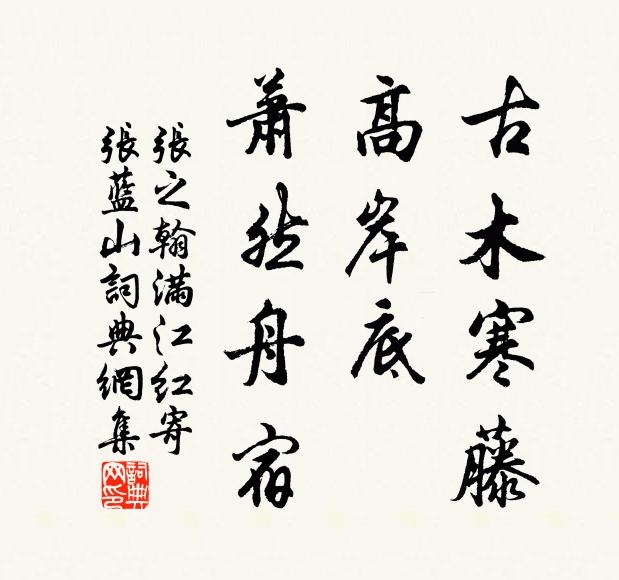 古木寒藤
高岸底
蕭然舟宿
張之翰滿江紅寄
張藍山詞典網集
詞典
网印